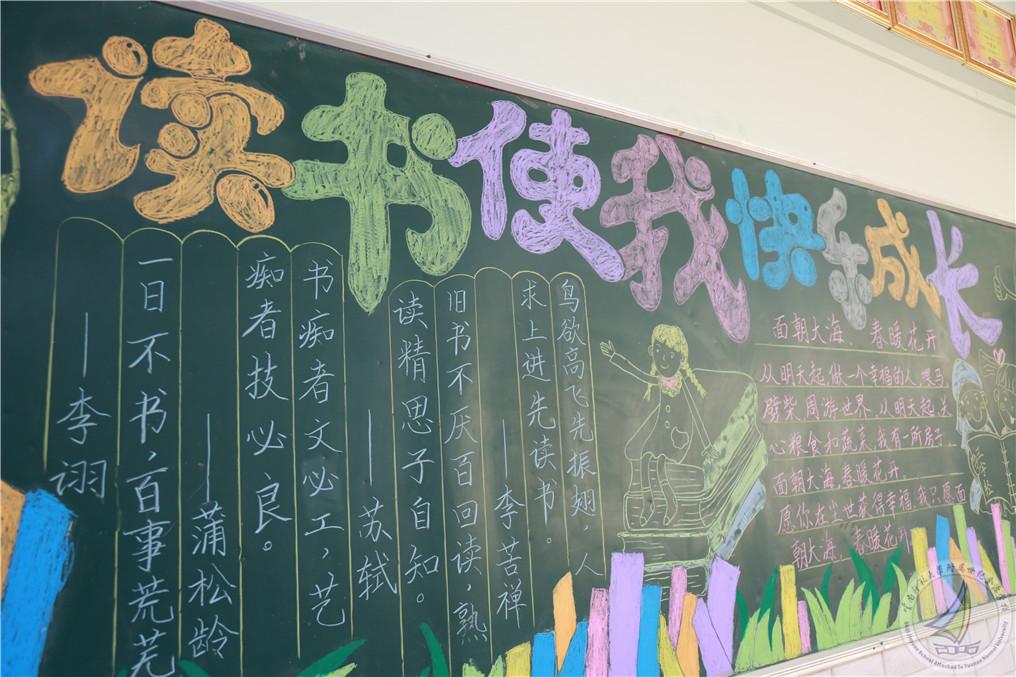 读书使我快乐成长
鸟欲高飞先振翅,人
求上进先读书。
——李苦禅
旧书不厌百回读,熟
读精思子自知。
——苏轼
书痴者文必工,艺
痴者技必良。
——蒲松龄
一日不书,百事荒芜
——李诩
面朝大海、春暖花开
从明天起,做一个幸福的人、喂马
劈柴,周游世界、从明天起,关
心粮食和蔬菜,我有一所房子,
面朝大海,春暖花开。
愿你在尘世获得幸福,我只愿面
朝大海,春暖花开
School Affiliated To Yunnan Normal University